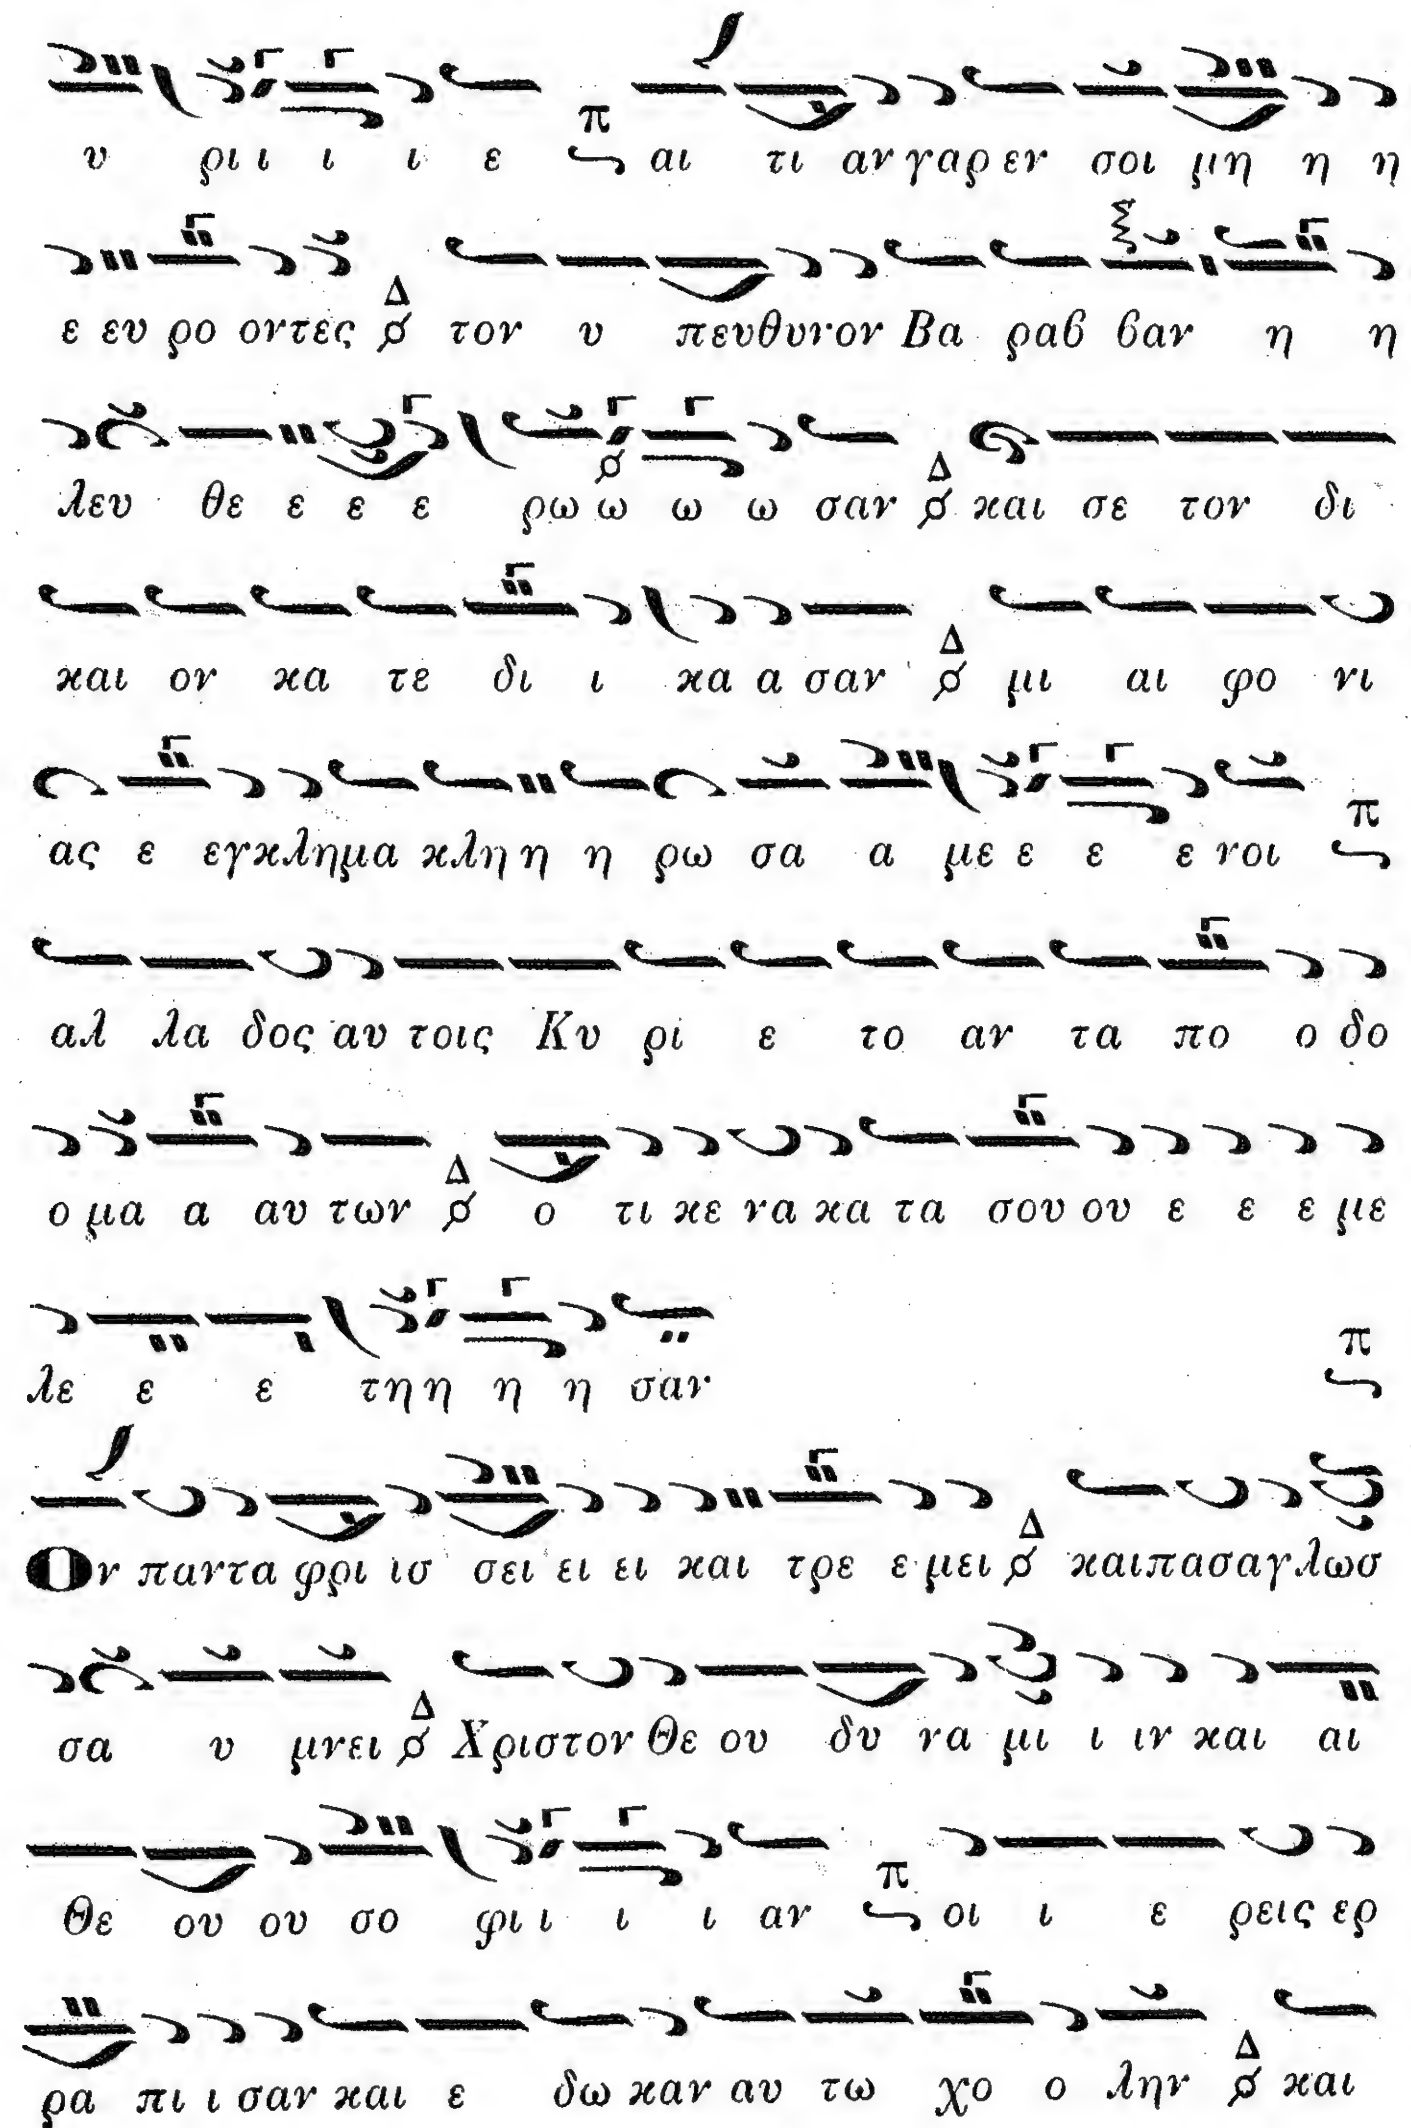 υ ρι ι ι ι ε π αι τι αν γαρ εν σοι μη η η
ε ευ ρο οντες Δ τον υ πευθυνον Βα ραβ βαν η η
λευ θε ε ε ε ρω ω ω ω σαν Δ και σε τον δι
και ον κα τε δι ι κα α σαν Δ μι αι φο νι
ας ε εγκλημα κλη η η ρω σα α με ε ε ε νοι π
αλ λα δος αυ τοις Κυ ρι ε το αν τα πο ο δο
ο μα α αυ των Δ ο τι κε να κα τα σου ου ε ε ε με
λε ε ε τη η η η σαν π
Ον παντα φρι ισ σει ει ει και τρε ε μει Δ και πασα γλωσ
σα υ μνει Δ Χριστον Θε ου δυ να μι ι ιν και αι
Θε ου ου σο φι ι ι ι αν π οι ι ε ρεις ερ
ρα πι ι σαν και ε δω καν αυ τω χο ο λην Δ και